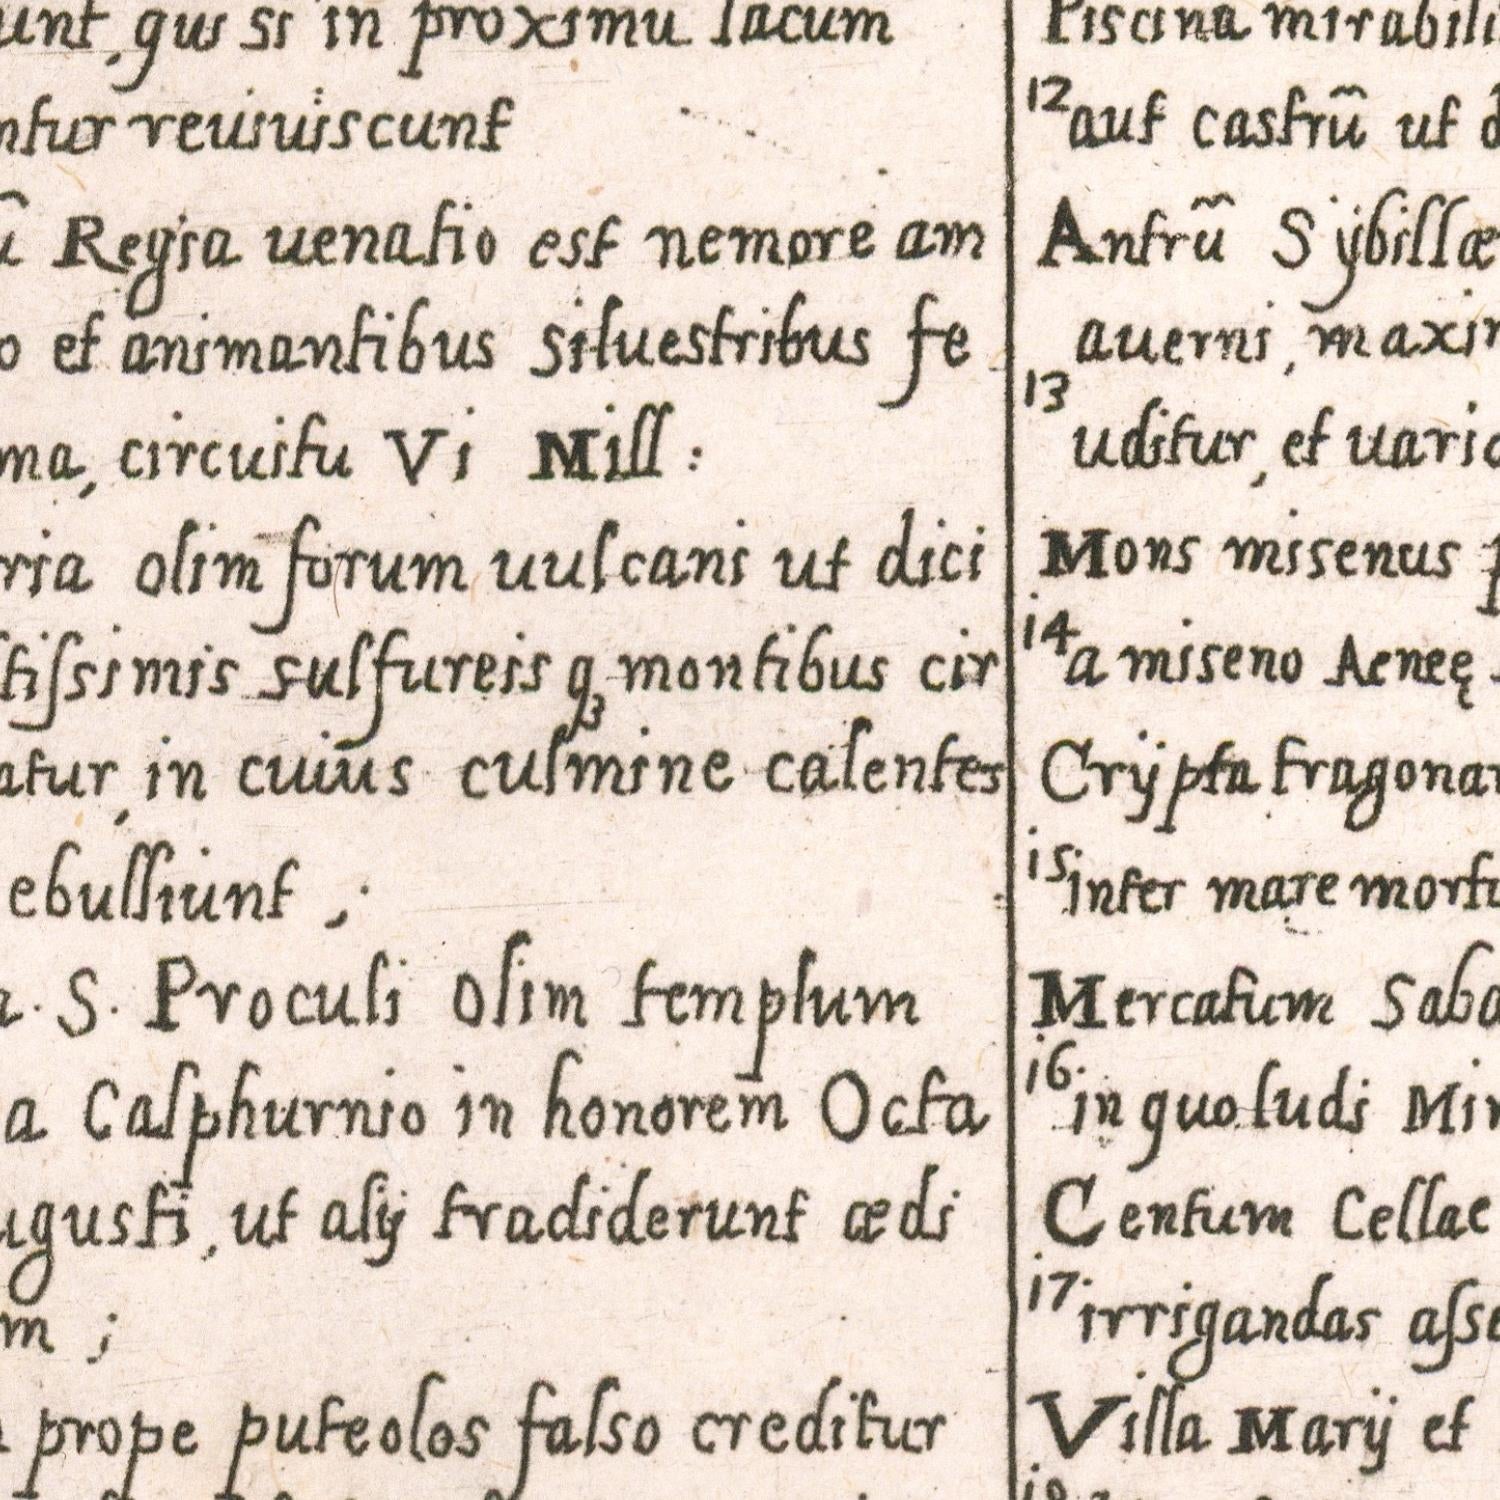 unt, qui si in proximū lacum
ntur reuiuiscunt
ũ Regia uenatio est nemore am
o et animantibus siluestribus fe
ma, circuitu Vi Mill:
ria olim forum uulcani ut dici
tiſsimis sulfureisqꝫ montibus cir
atur, in cuius culmine calentes
ebulliunt ;
a. S. Proculi olim templum
a Calphurnio in honorem Octa
ugusti, ut alij tradiderunt ædi
m ;
prope puteolos falso creditur
Piscina mirabili
12 aut castrũ ut d
Antrũ Sÿbillæ
auerni, maxim
13 uditur, et uario
Mons misenus p
14 a miseno Aeneę
Crÿpta tragonar
15 inter mare mortu
Mercatum Saba
16 in quo ludi Mir
Centum Cellae
17 irrigandas aſse
Villa Marij et